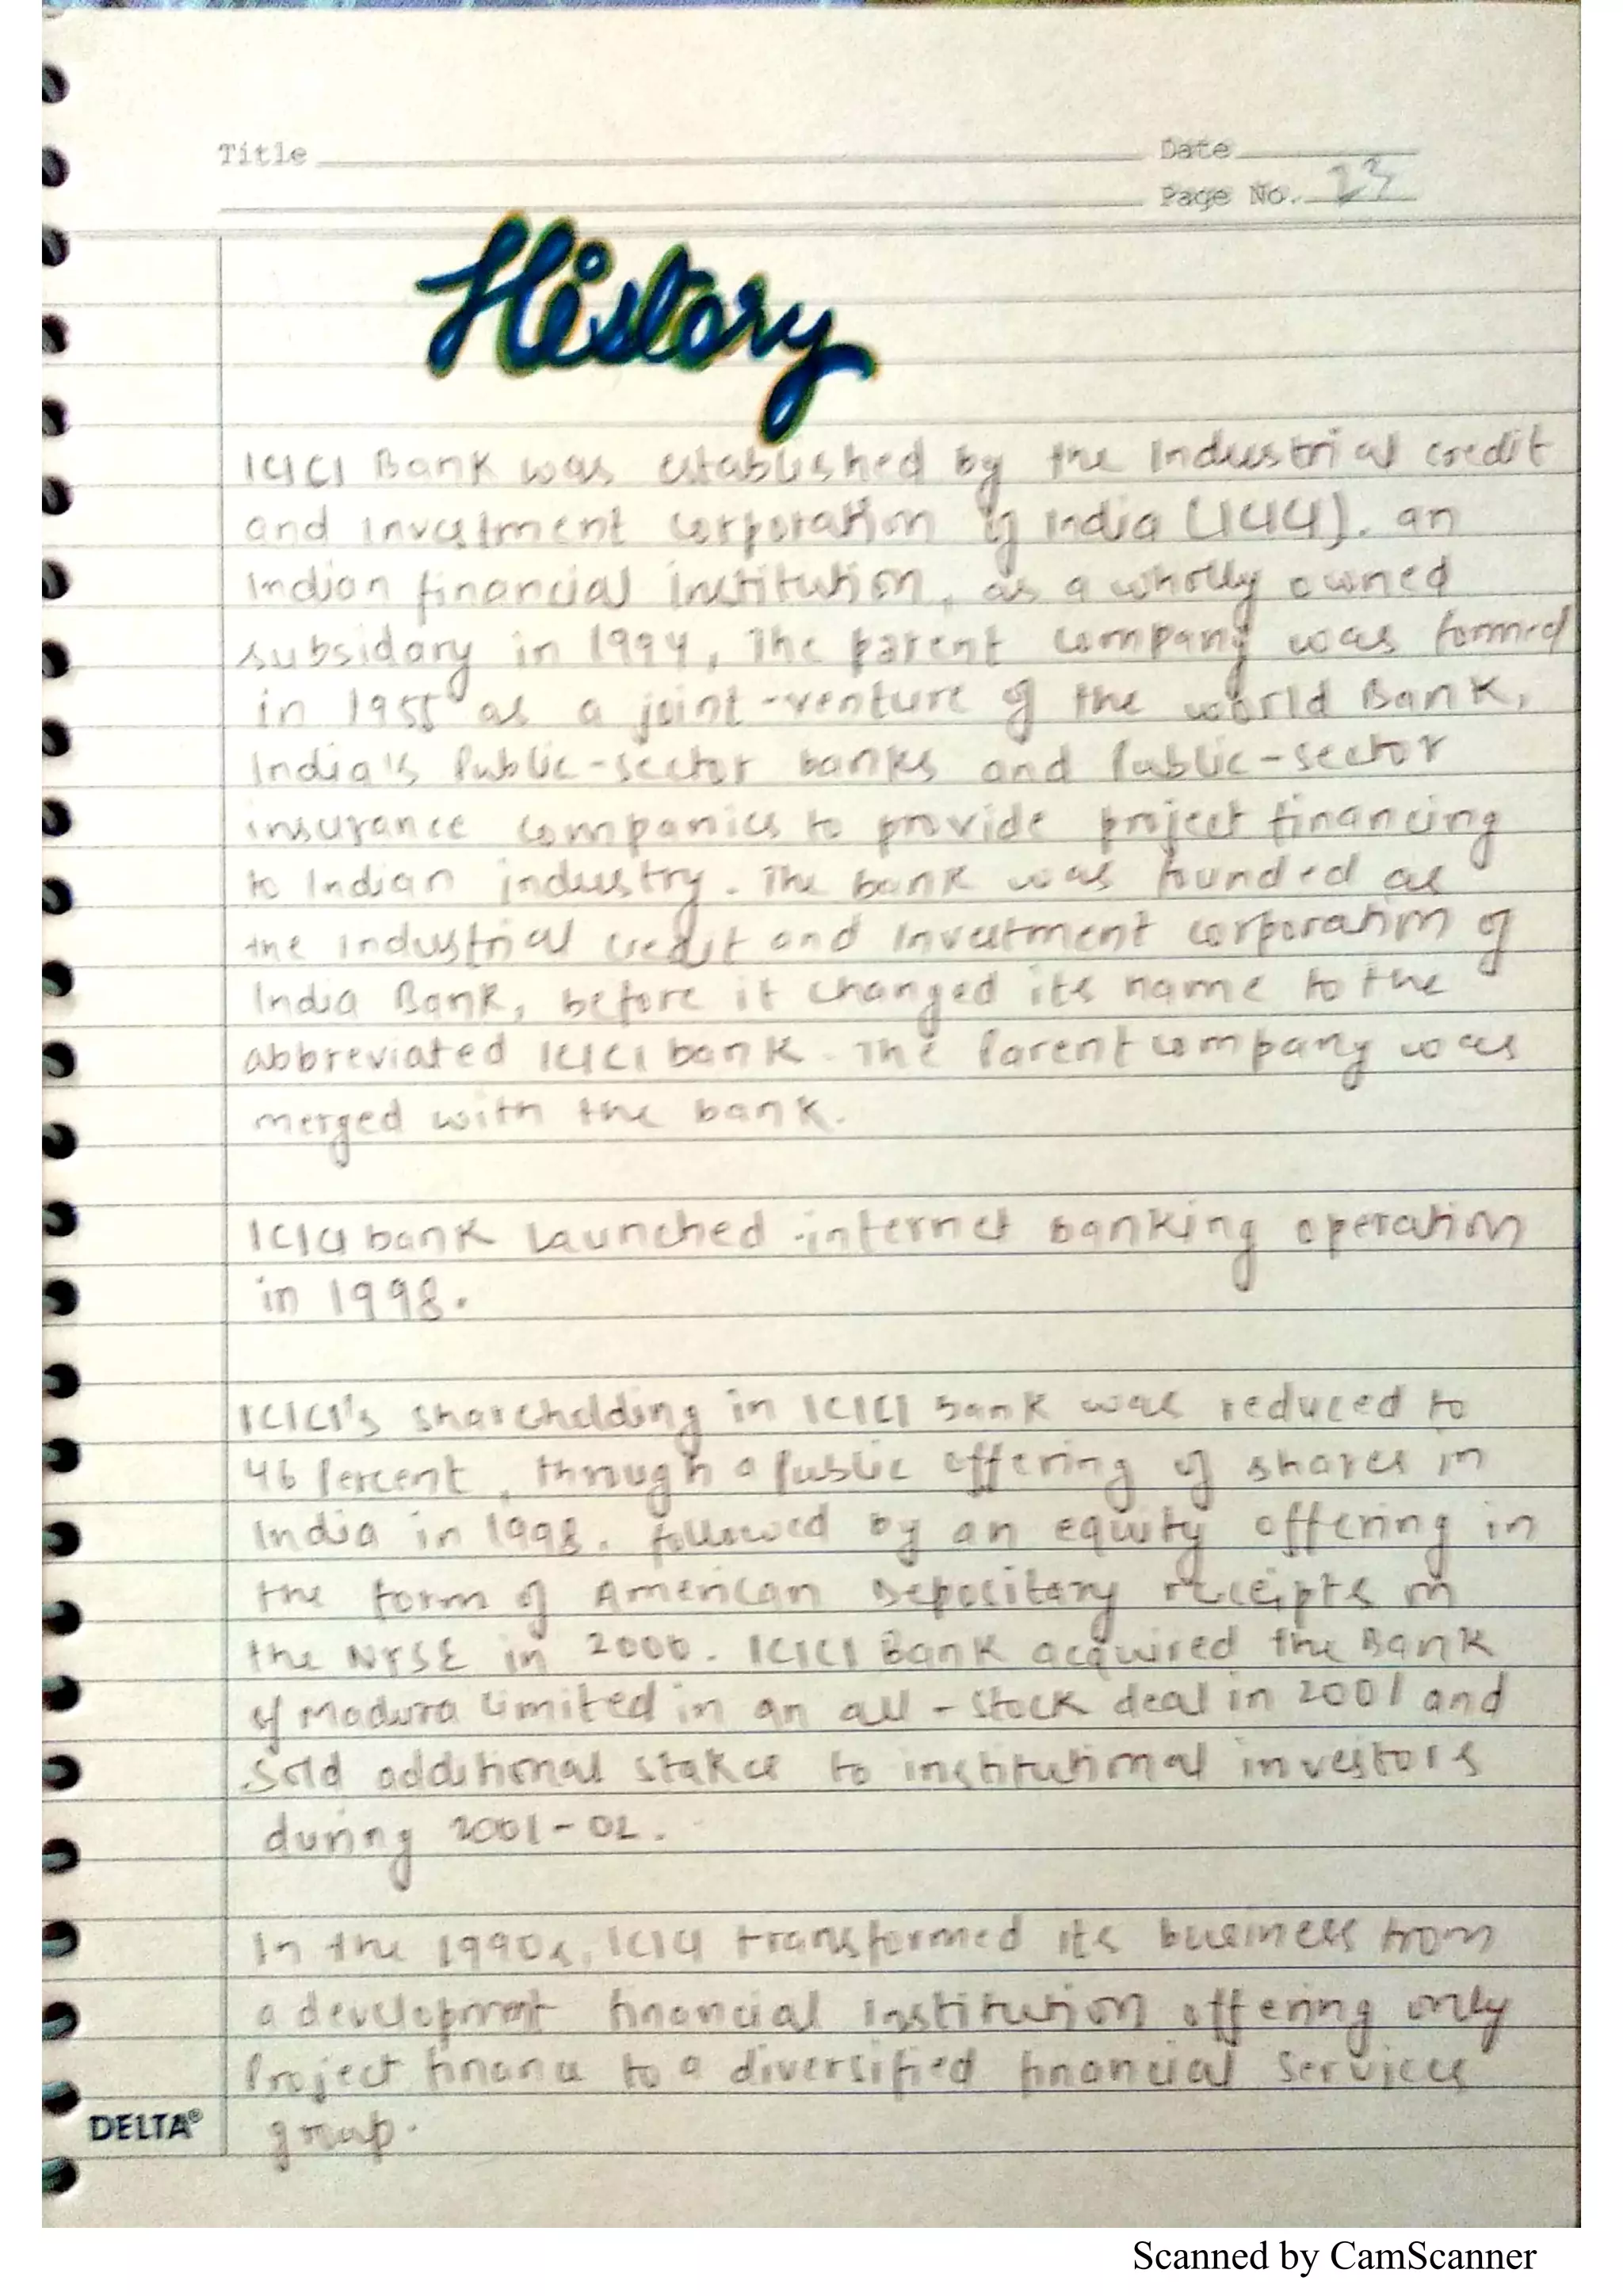 Title
Date
Page No. 23
History
ICICI Bank was established by the Industrial credit
and investment corporation of India (ICICI). an
Indian financial institution, as a wholly owned
subsidary in 1994, The parent company was formed
in 1955 as a joint-venture of the world Bank,
India's Public-sector banks and Public-sector
insurance companies to provide project financing
to Indian industry. The bank was founded as
the Industrial credit and Investment corporation of
India Bank, before it changed its name to the
abbreviated ICICI bank. The Parent company was
merged with the bank.
ICICI bank launched internet banking operation
in 1998.
ICICI's shareholding in ICICI bank was reduced to
46 Percent, through a Public offering of shares in
India in 1998. followed by an equity offering in
the form of American Depositary receipts on
the NYSE in 2000. ICICI Bank acquired the Bank
of Madura Limited in an all-stock deal in 2001 and
sold additional stakes to institutional investors
during 2001-02.
In the 1990s, ICICI transformed its business from
a development financial institution offering only
Project finance to a diversified financial services
group.
DELTA®
Scanned by CamScanner